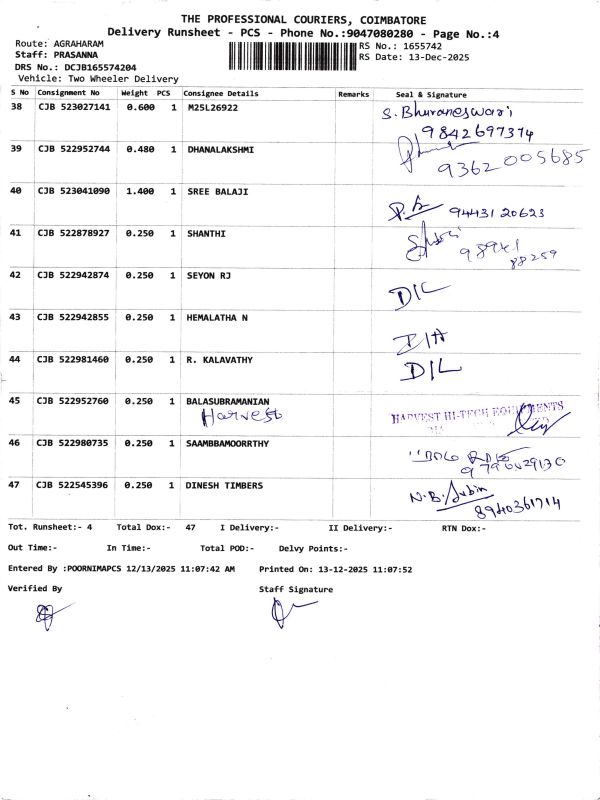 THE PROFESSIONAL COURIERS, COIMBATORE
Delivery Runsheet - PCS - Phone No.:9047080280 - Page No.:4
Route: AGRAHARAM
Staff: PRASANNA
DRS No.: DCJB165574204
Vehicle: Two Wheeler Delivery
RS No.: 1655742
RS Date: 13-Dec-2025
S No Consignment No Weight PCS Consignee Details Remarks Seal & Signature
38 CJB 523027141 0.600 1 M25L26922 S. Bhuvaneswari
9842697374
39 CJB 522952744 0.480 1 DHANALAKSHMI
9362005685
40 CJB 523041090 1.400 1 SREE BALAJI
9443120623
41 CJB 522878927 0.250 1 SHANTHI
98941
88259
42 CJB 522942874 0.250 1 SEYON RJ D/L
43 CJB 522942855 0.250 1 HEMALATHA N
44 CJB 522981460 0.250 1 R. KALAVATHY D/L
45 CJB 522952760 0.250 1 BALASUBRAMANIAN
Harvest HARVEST HI-TECH EQUIPMENTS
46 CJB 522980735 0.250 1 SAAMBBAMOORRTHY
47 CJB 522545396 0.250 1 DINESH TIMBERS N.B. Subin
8940361714
Tot. Runsheet:- 4 Total Dox:- 47 I Delivery:- II Delivery:- RTN Dox:-
Out Time:- In Time:- Total POD:- Delvy Points:-
Entered By :POORNIMAPCS 12/13/2025 11:07:42 AM Printed On: 13-12-2025 11:07:52
Verified By Staff Signature